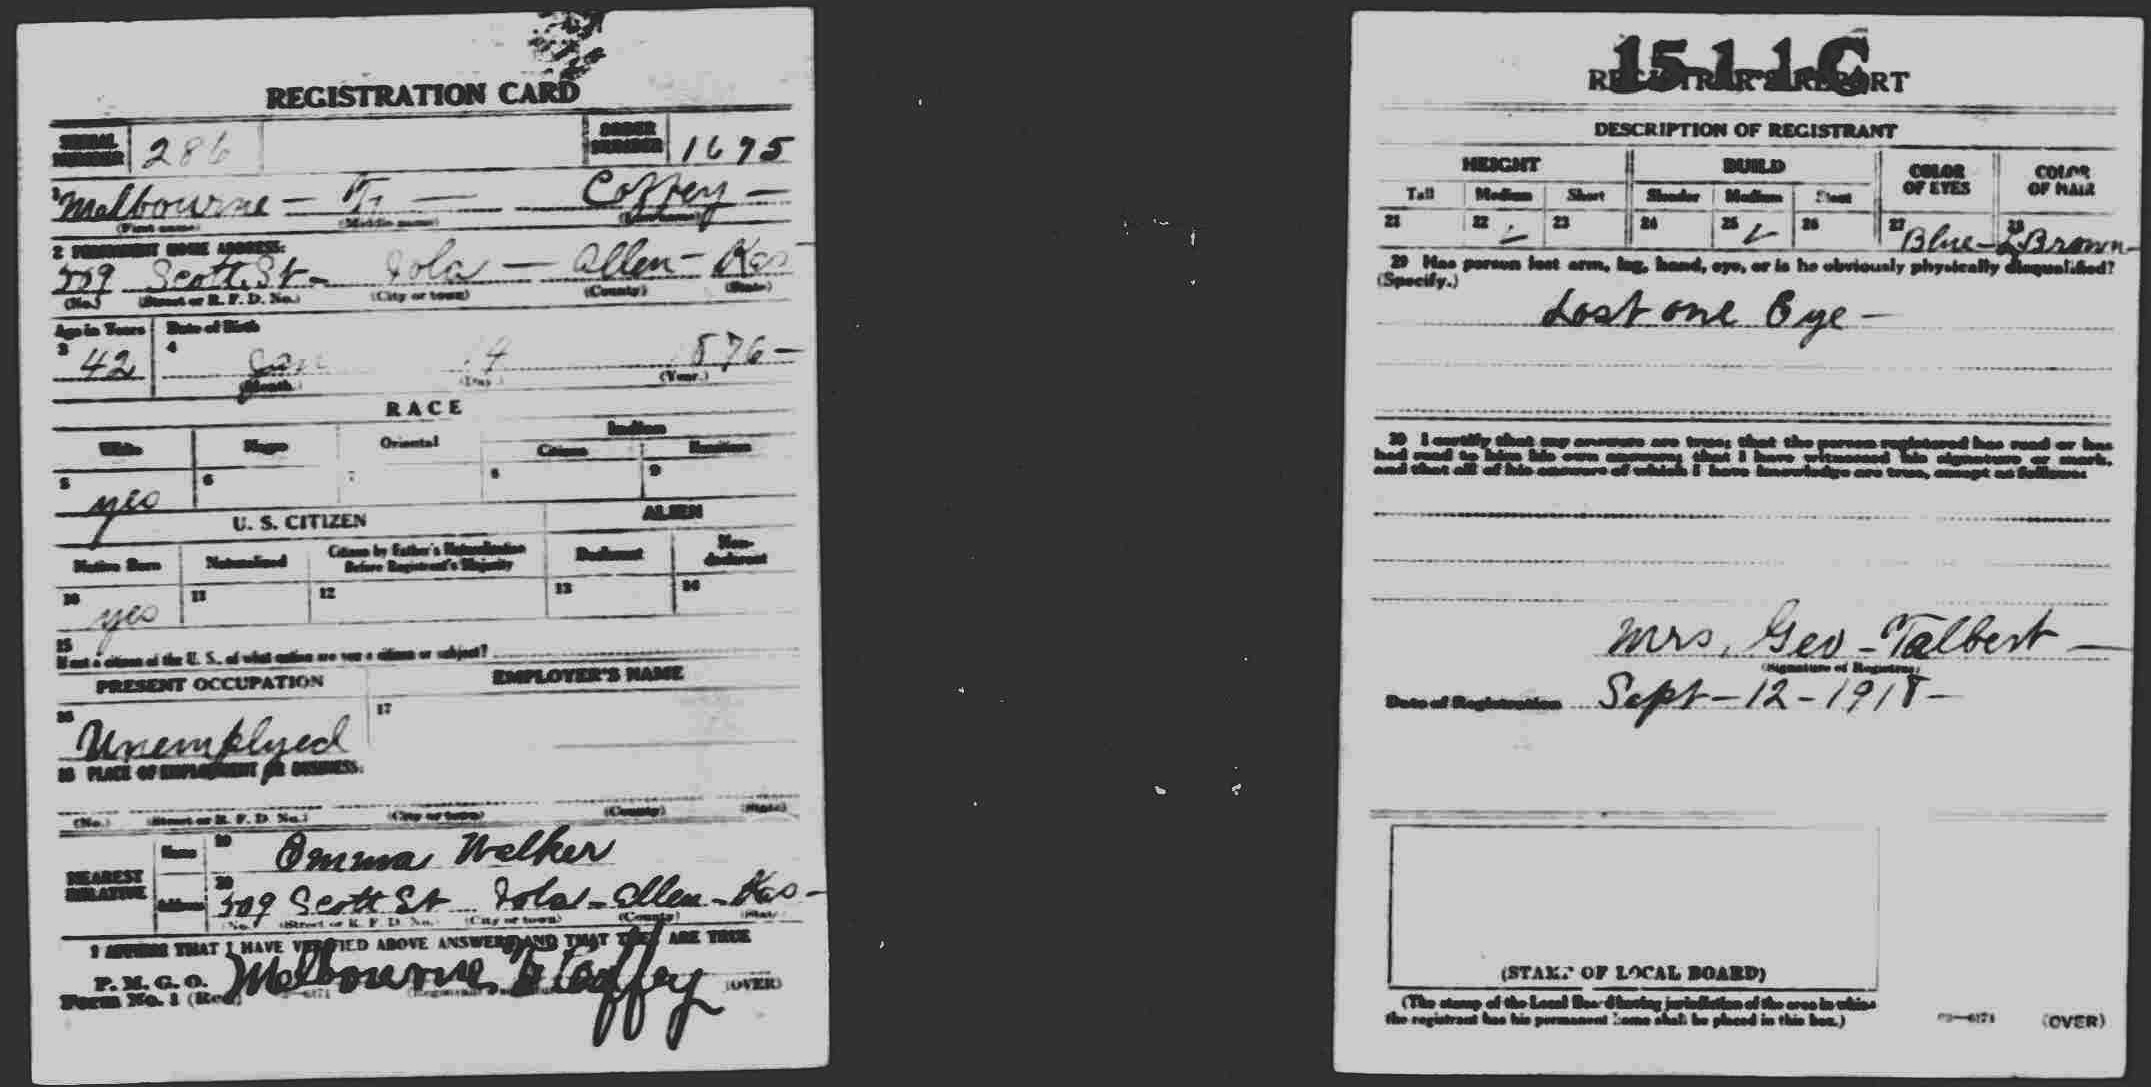 REGISTRATION CARD
SERIAL NUMBER 286 ORDER NUMBER 1695
1 Melbourne — — Coffey —
(First name) (Middle name) (Last name)
2 PERMANENT HOME ADDRESS:
309 Scott St — Iola — Allen — Kas
(No.) (Street or R. F. D. No.) (City or town) (County) (State)
Age in Years Date of Birth
3 42 4 Jan 876 —
(Month.) (Day.) (Year.)
RACE
White Negro Oriental Indian
Citizen Noncitizen
5 yes 6 7 8 9
U. S. CITIZEN ALIEN
Native Born Naturalized Citizen by Father's Naturalization Before Registrant's Majority Declarant Non-declarant
10 yes 11 12 13 14
15
If not a citizen of the U. S., of what nation are you a citizen or subject?
PRESENT OCCUPATION EMPLOYER'S NAME
16 Unemplyed 17
18 PLACE OF EMPLOYMENT OR BUSINESS:
(No.) (Street or R. F. D. No.) (City or town) (County) (State)
NEAREST RELATIVE Name 19 Emma Walker
Address 20 309 Scott St Iola — Allen — Kas —
(No.) (Street or R. F. D. No.) (City or town) (County) (State)
I AFFIRM THAT I HAVE VERIFIED ABOVE ANSWERS AND THAT THEY ARE TRUE
P. M. G. O.
Form No. 1 (Red) Melbourne Coffey (OVER)
15-1-1-C
REGISTRAR'S REPORT
DESCRIPTION OF REGISTRANT
HEIGHT BUILD COLOR OF EYES COLOR OF HAIR
Tall Medium Short Slender Medium Stout
21 22 ✓ 23 24 25 ✓ 26 27 Blue — 28 L Brown —
29 Has person lost arm, leg, hand, eye, or is he obviously physically disqualified?
(Specify.)
Lost one Eye —
30 I certify that my answers are true; that the person registered has read or has
had read to him his own answers; that I have witnessed his signature or mark,
and that all of his answers of which I have knowledge are true, except as follows:
Mrs. Geo — Talbert —
(Signature of Registrar)
Date of Registration Sept — 12 — 1918 —
(STAMP OF LOCAL BOARD)
(The stamp of the Local Board having jurisdiction of the area in which
the registrant has his permanent home shall be placed in this box.)
03—6171 (OVER)